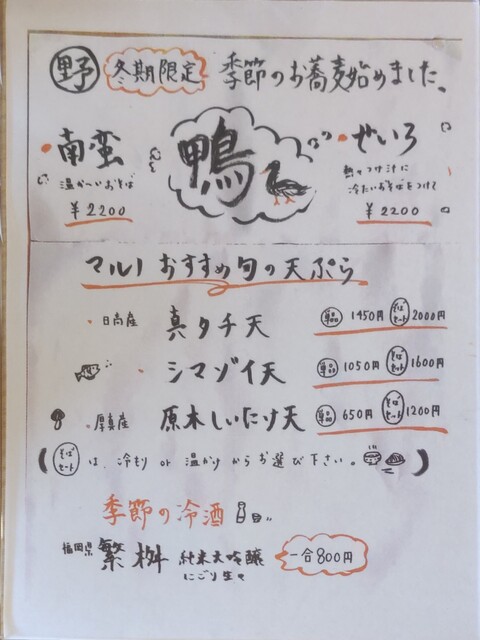 野 冬期限定 季節のお蕎麦始めました。
南蛮 鴨 せいろ
温か〜いおそば
熱々つけ汁に
冷たいおそばをつけて
¥2200 ¥2200
マルノおすすめ旬の天ぷら
・日高産 真タチ天 単品 1450円 そばセット 2000円
・シマゾイ天 単品 1050円 そばセット 1600円
・厚真産 原木しいたけ天 単品 650円 そばセット 1200円
(そばセットは、冷もり or 温かけからお選び下さい。)
季節の冷酒
福岡県 繁桝 純米大吟醸 一合800円
にごり生々